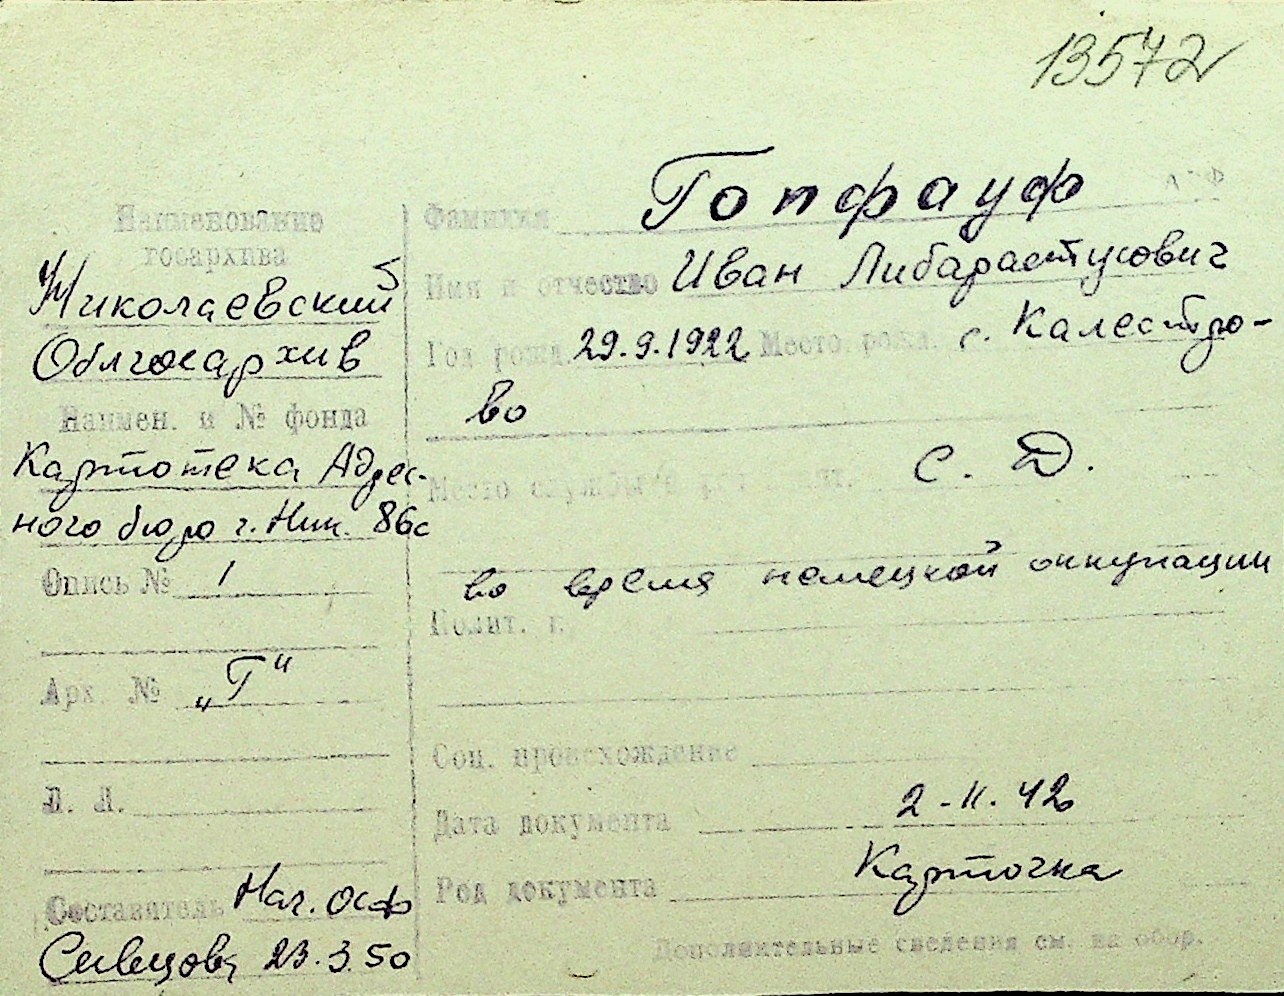 13572
Наименование
госархива
Николаевский
Облгосархив
Наимен. и № фонда
Картотека Адрес-
ного бюро г. Ник. 86с
Опись № 1
Арх. № „Г"
Л. Л.
Составитель Нач. ОСФ
Сивцова 23.3.50
Фамилия Гопфауф
Имя и отчество Иван Либарастусович
Год рожд. 29.9.1922 Место рожд. с. Калестро-
во
Место службы С. Д.
во время немецкой оккупации
Полит. г.
Соц. происхождение
Дата документа 2-11.42
Род документа Карточка
Дополнительные сведения см. на обор.